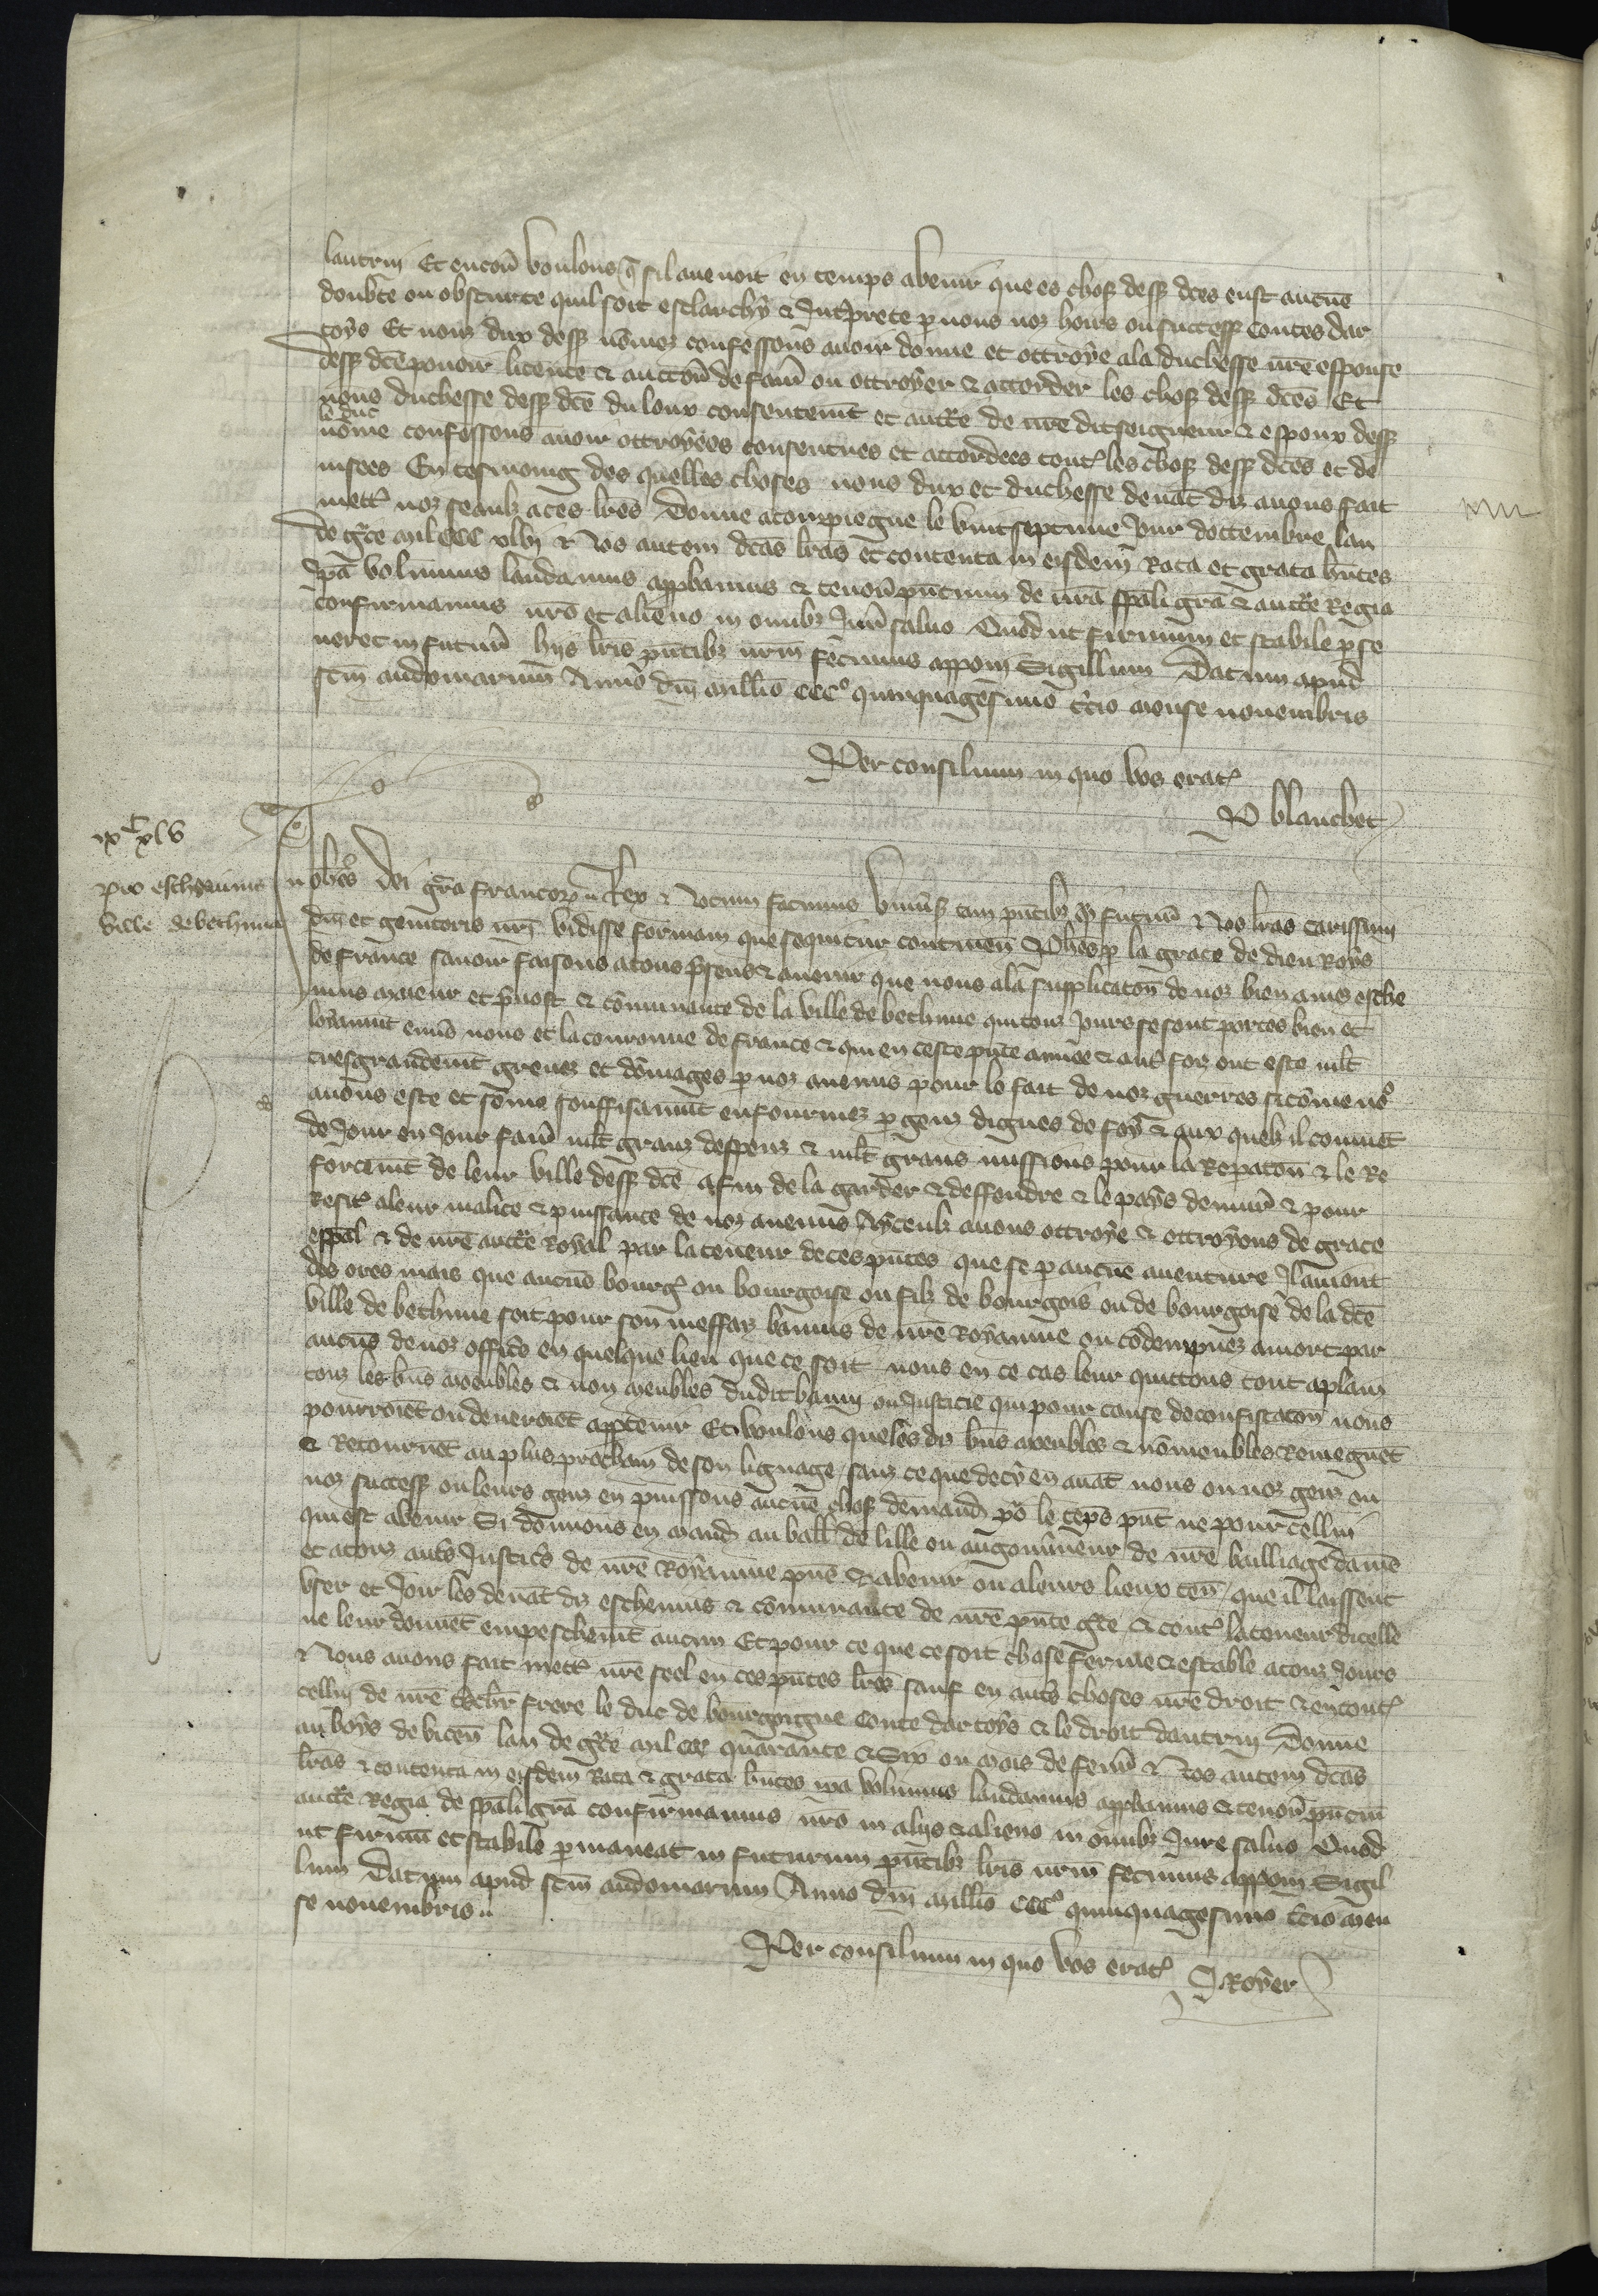 lautrui Et encor̃ voulons q̃ sil avenoit en temps avenir que es choses dess dc̃es eust aucũe
doubte ou obscurte quil soit esclarchy & Int̃prete p nous noz hoirs ou success̃ contes dar
toys Et nous dux dess nõmez confessons avoir donne et ottroye ala duchesse nr̃e espouse
dess dc̃e povoir licence & auctor̃ de fair̃ ou ottroyer & accorder les choses dess dc̃es Et
nous duchesse dess dc̃e du loux consentemt̃ et auct̃e de nr̃e dit seigneur & espoux dess
le duc
nõme confessons avoir ottroyees consentues et accordees tout̃ les choses dess dc̃es et de
visees En tesmoing des quelles choses nous dux et duchesse devãt diz avons fait
mett̃ noz seaulx a ces lr̃es Donne a compiegne le vint septime Jour doctembre lan
de gr̃ce mil CCC xlvj & Nos autem dc̃as lr̃as et contenta in eisdem Rata et grata hñtes
Ip̃a volumus laudamus app̃bamus & tenor̃ pñtium de nr̃a sp̃ali gr̃a & auct̃e Regia
confirmamus nr̃o et alieno in omnibz Jur̃ salvo Quod ut firmum et stabile p̃se
veret in futur̃ hiis lr̃is pñtibz nr̃m fecimus apponi Sigillum Datum apud
sc̃m audomarum Anno dñi millio CCC° quinquagesimo t̃cio mense novembris
Per consilium in quo vos erat̃
P blanchet
ix^C xlv
pro eschevinis
ville de bethunia
Johẽs dei gr̃a francor̃ Rex & Notum facimus Uniṽs tam pñtibz q̃ futur̃ & Nos lr̃as carissimi
dñi et genitoris nr̃i vidisse formam que sequitur continen̄ Phẽs p la grace de dieu Roys
de france savoir faisons a tous p̃sens & avenir que nous ala supplicatõn de noz bien ames esche
vins maieur et p̃vost & cõmunaute de la ville de bethune qui touz Jours se sont portes bien et
loyaumt̃ envs̃ nous et la couronne de france & qui en ceste pñte annee & aut̃ foiz ont este ml̃t
tresgrandemt̃ grevez et dõmages p noz anemis pour le fait de noz guerres si cõme no9
avons este et sõme souffisaumt̃ enfourmez p gens dignes de foy & aux quelz il convĩt
de Jour en Jour fair̃ ml̃t granz despens & ml̃t grans missions pour la Repatõn & le Re
forcemt̃ de leur ville dess dc̃e afin de la garder & deffendre & le pays denvir̃ & pour
Resist̃ aleur malice & puissance de noz anemis Aiceulx avons ottroye & ottroyons de grace
esp̃al & de nr̃e auct̃e Royal par la teneur de ces pñtes que se p aucũe aventure Il avient
des ores mais que aucũs bourg̃ ou bourgoise ou filz de bourgois ou de bourgoise de la dc̃e
ville de bethune soit pour son meffaiz banniz de nr̃e Royaume ou cõdempnez a mort par
aucũs de noz offic̃s en quelque lieu que ce soit nous en ce cas leur quittons tout aplain
touz les bñs meubles & non meubles dudit banny ou Justicie qui pour cause de confiscatõn nous
pourroiẽt ou devroiẽt app̃tenir Et voulons que les diz bñs meubles & nõmeubles Remegnẽt
& Retournẽt au plus prochain de son lignage sanz ce que de cy en avãt nous ou noz gens ou
noz success̃ ou leurs gens en puissons aucũe chose demand̃ po le tẽps pñt ne pour cellui
qui est avenir Si donnons en mand̃ au baill̃ de lille ou au gouṽneur de nr̃e bailliage damiẽ
et a touz aut̃s Justic̃s de nr̃e Royaume pñs & avenir ou aleurs lieux ten̄ que il laissent
user et Joir les devãt diz eschevins & cõmunaute de nr̃e pñte gr̃ce & cont̃ la teneur dicelle
ne leur donnẽt empeschemt̃ aucun Et pour ce que ce soit chose ferme & estable a touz Jours
& Nous avons fait mett̃ nr̃e seel en ces pñtes lr̃es sauf en aut̃s choses nr̃e droit & en tout̃
cellui de nr̃e frere le duc de bourgoigne Conte dartoys & le droit dautrui Donne
au boys de vicen̄ lan de gr̃ce mil ccc quarante & Six ou mois de fevr̃ & Nos autem dc̃as
lr̃as & contenta in eisdem Rata & grata hñtes ip̃a volumus laudamus app̃bamus & tenor̃ pñtiũ
auct̃e Regia de sp̃ali gr̃a confirmamus nr̃o in aliis & alieno in omnibz Jure salvo Quod
ut firmũ et stabile p̃maneat in futurum pñtibz lr̃is nr̃m fecimus apponi Sigil
lum Datum apud sc̃m audomarum Anno dñi millio CCC° quinquagesimo t̃cio men
se novembris
Per consilium in quo vos erat̃
J Royer